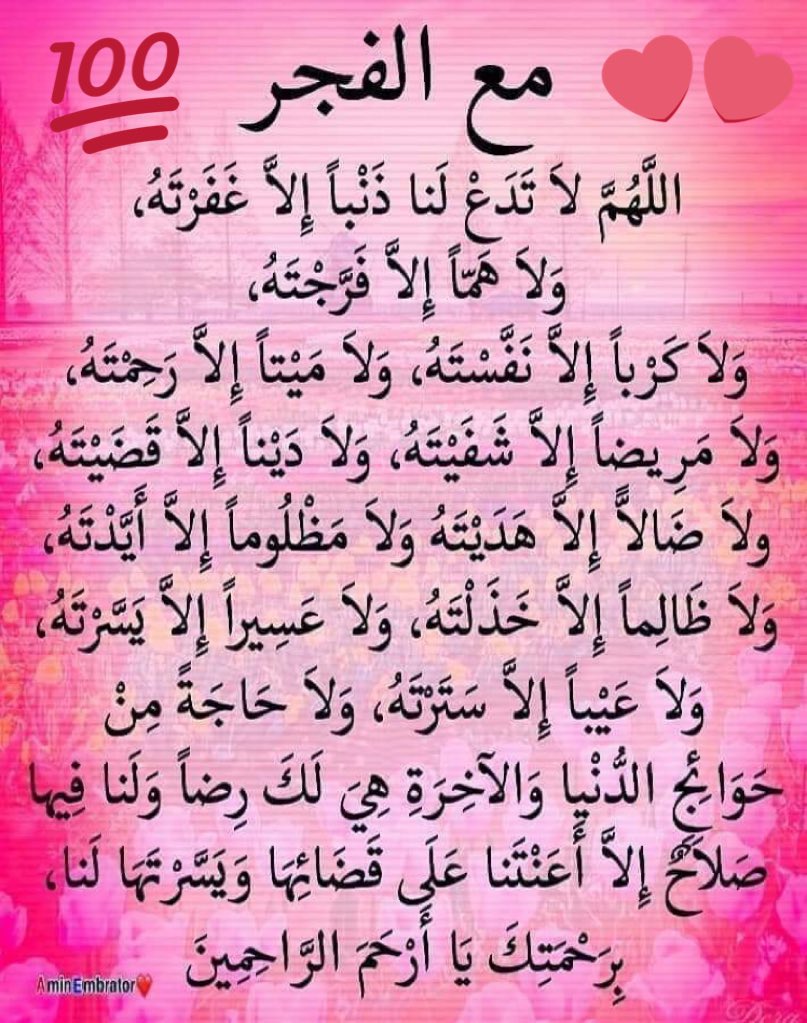 💯 مع الفجر ❤❤
اللَّهُمَّ لاَ تَدَعْ لَنا ذَنْباً إِلاَّ غَفَرْتَهُ،
وَلاَ هَمّاً إِلاَّ فَرَّجْتَهُ،
وَلاَ كَرْباً إِلاَّ نَفَّسْتَهُ، وَلاَ مَيْتاً إِلاَّ رَحِمْتَهُ،
وَلاَ مَرِيضاً إِلاَّ شَفَيْتَهُ، وَلاَ دَيْناً إِلاَّ قَضَيْتَهُ،
ولاَ ضَالاًّ إِلاَّ هَدَيْتَهُ وَلاَ مَظْلُوماً إِلاَّ أَيَّدْتَهُ،
وَلاَ ظَالِماً إِلاَّ خَذَلْتَهُ، وَلاَ عَسِيراً إِلاَّ يَسَّرْتَهُ،
وَلاَ عَيْباً إِلاَّ سَتَرْتَهُ، وَلاَ حَاجَةً مِنْ
حَوَائِجِ الدُّنْيا وَالآخِرَةِ هِيَ لَكَ رِضاً وَلَنا فِيها
صَلاَحٌ إِلاَّ أَعَنْتَنا عَلَى قَضَائِهَا وَيَسَّرْتَهَا لَنا،
بِرَحْمَتِكَ يَا أَرْحَمَ الرَّاحِمِينَ
AminEmbrator❤